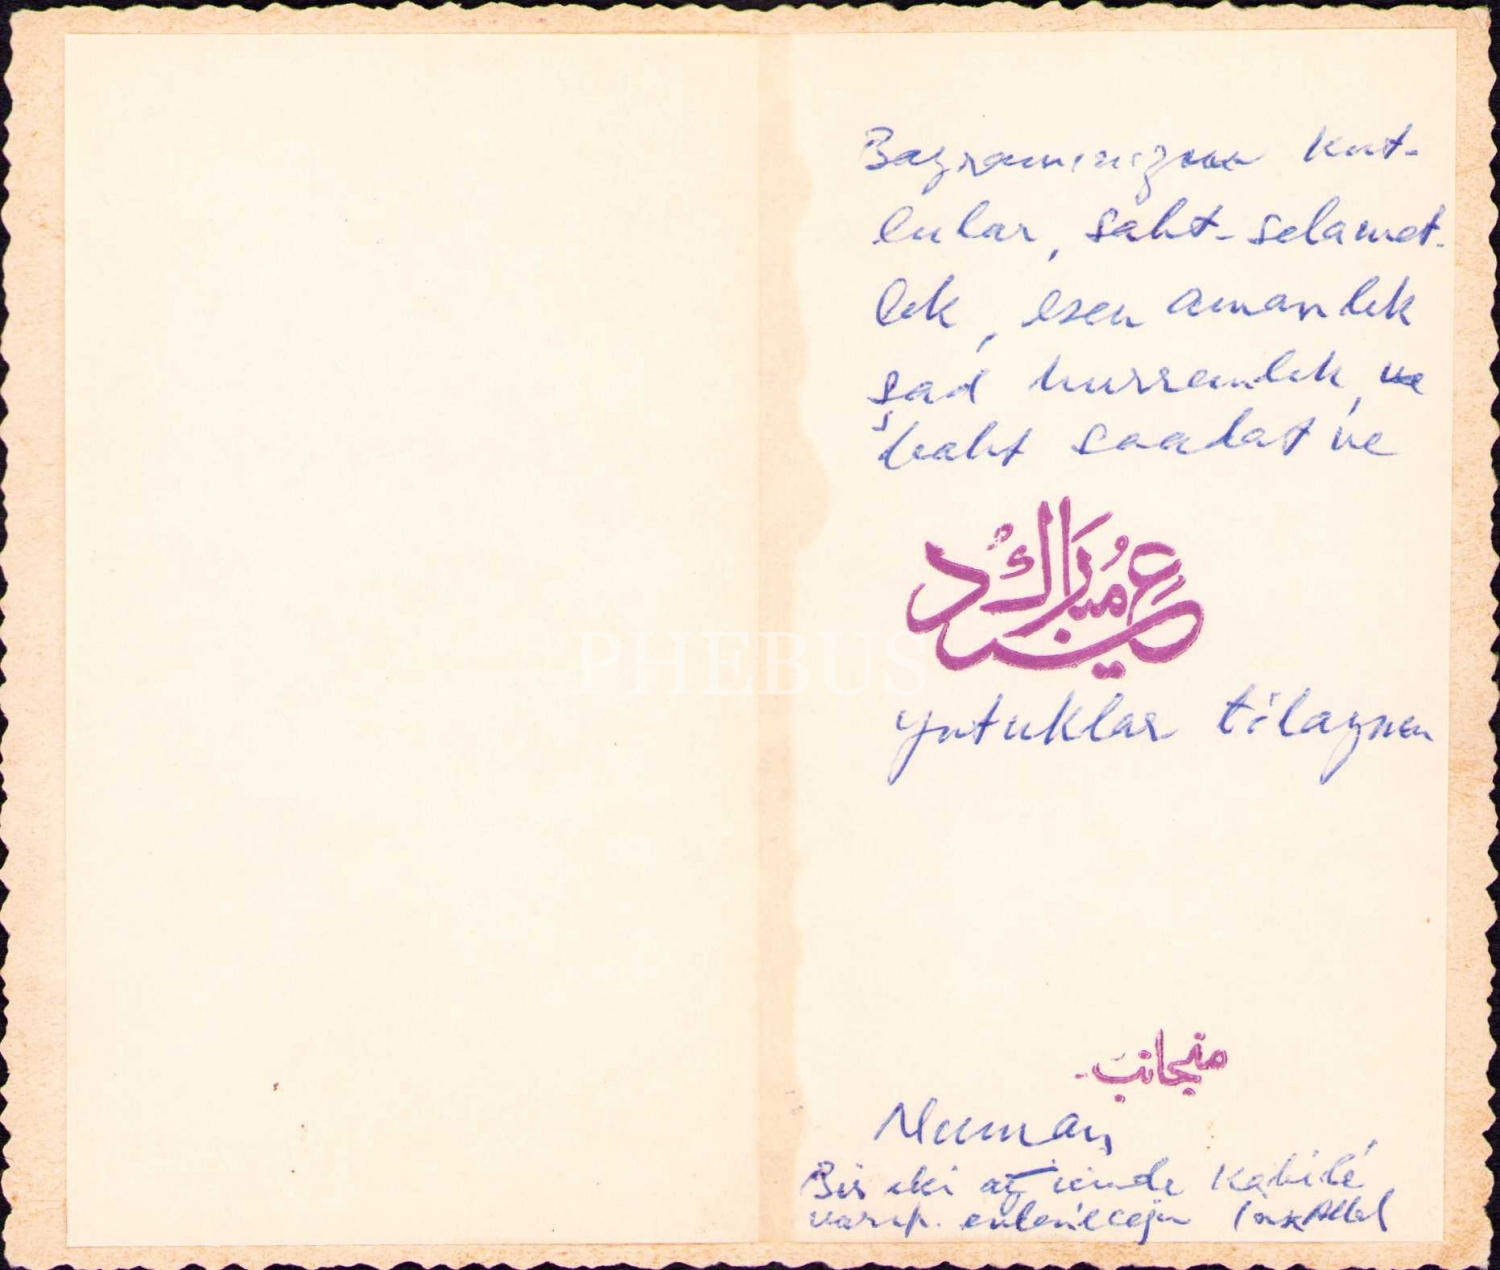 Bayramınıznı kut-
lular, saht-selamet-
lık, esen amanlık
şad hurramlık, ve
baht saadat ve
عيد مبارك
PHEBUS
yutuklar tilaymen
منجانب
Numan
Bir iki ay içinde Kabile
varıp evleneceğim İnşAllah